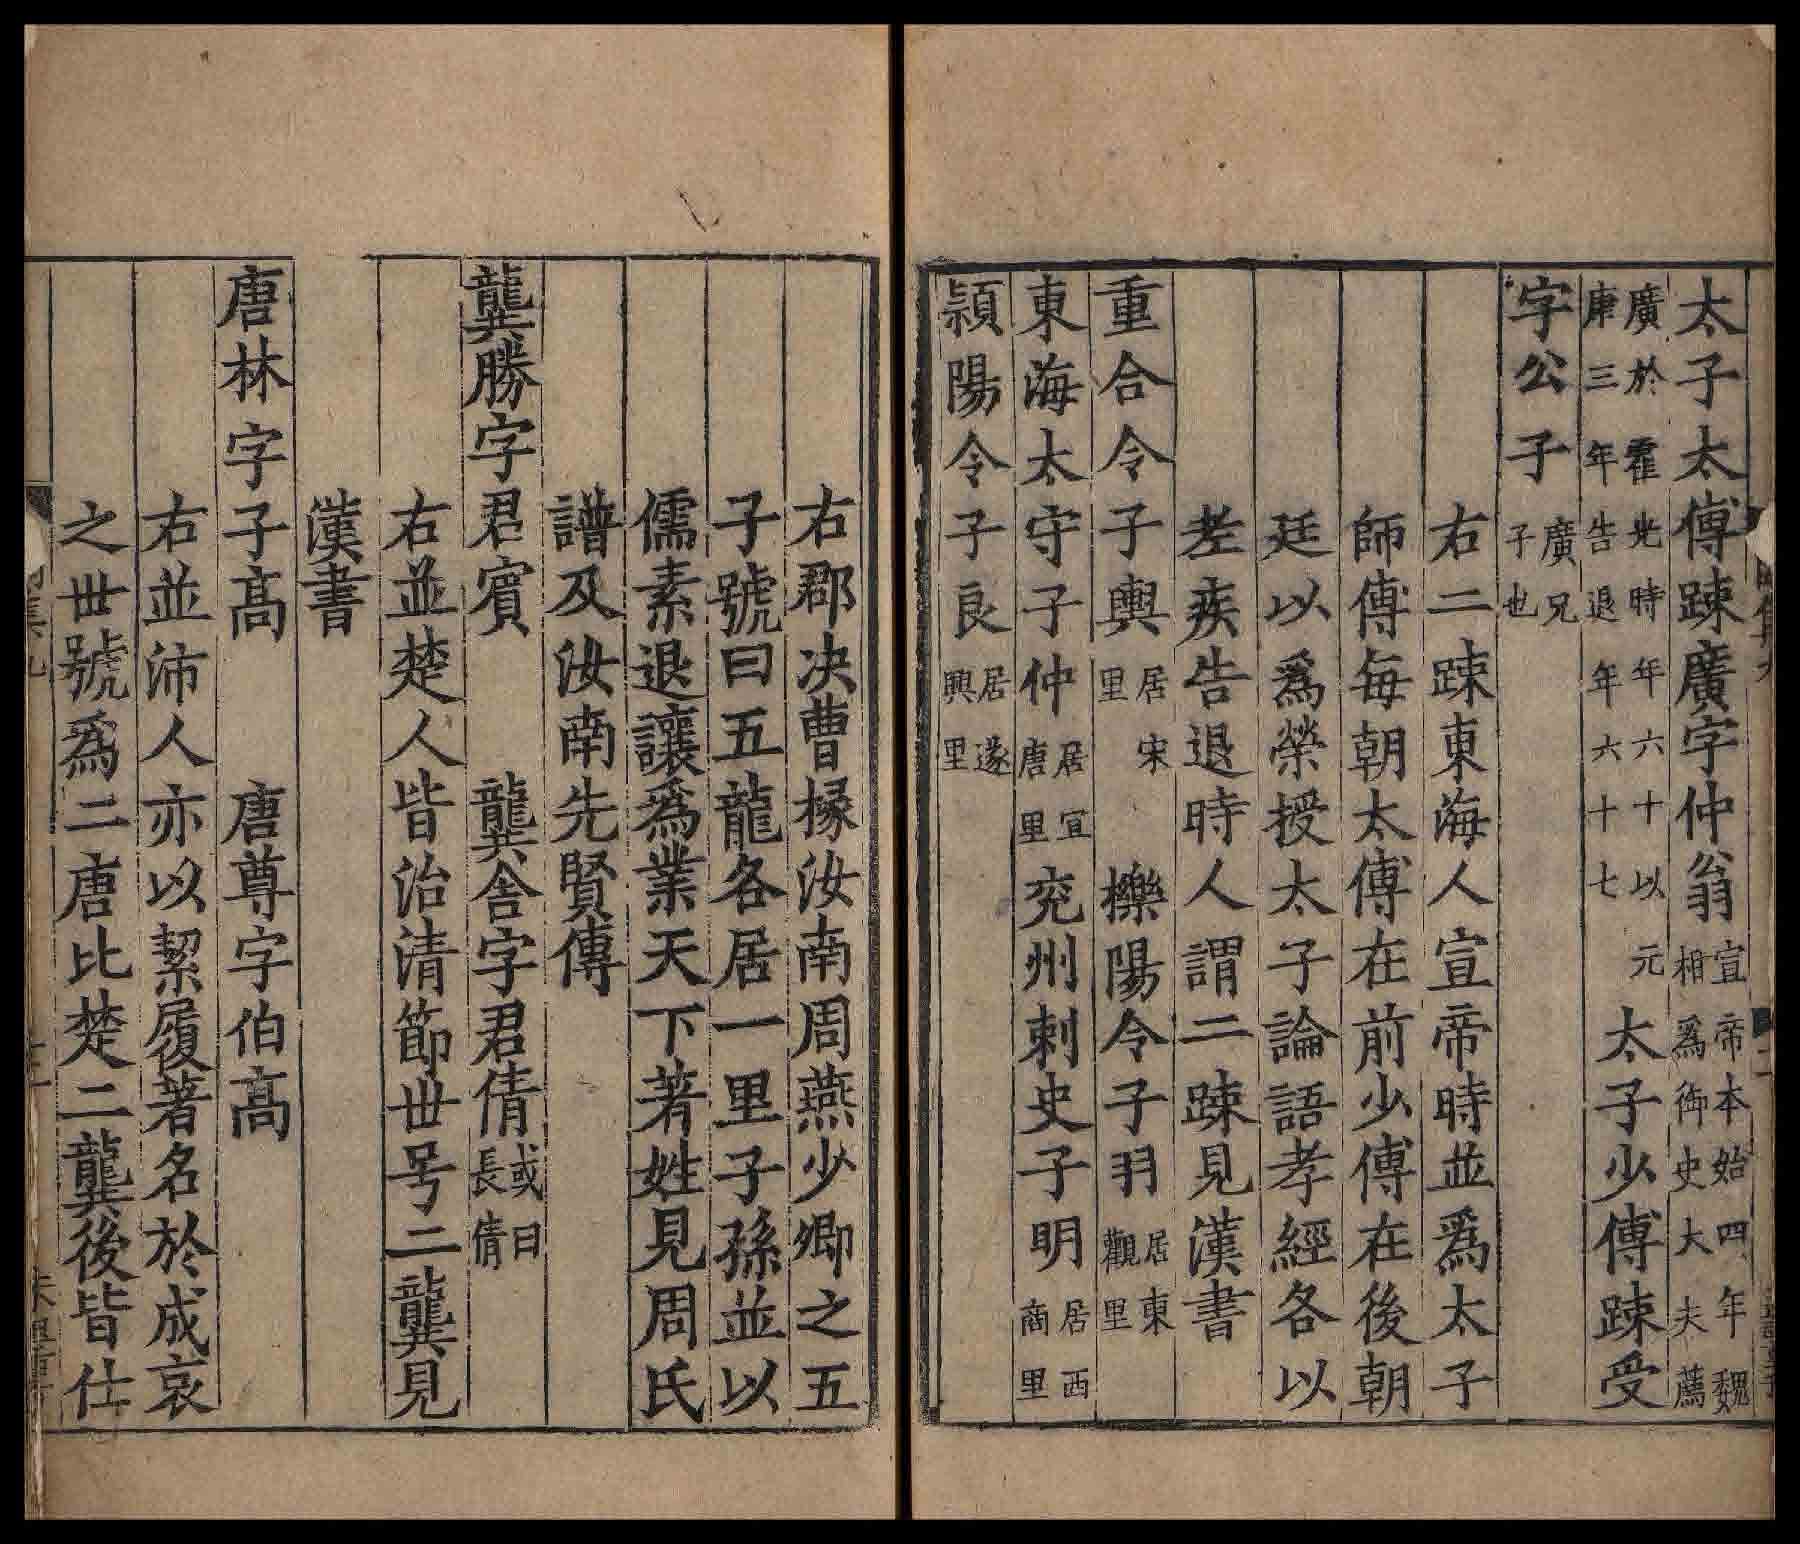 太子太傅踈廣字仲翁宣帝本始四年魏相爲御史大夫薦
廣於霍光時年六十以元康三年告退年六十七太子少傅踈受
字公子廣兄子也
右二踈東海人宣帝時並爲太子
師傅每朝太傅在前少傅在後朝
廷以爲榮授太子論語孝經各以
老疾告退時人謂二踈見漢書
重合令子輿居宋里 櫟陽令子羽居東觀里
東海太守子仲居宜唐里 兖州刺史子明居西商里
潁陽令子良居遂興里
右郡决曹掾汝南周燕少卿之五
子號曰五龍各居一里子孫並以
儒素退讓爲業天下著姓見周氏
譜及汝南先賢傳
龔勝字君賓 龔舍字君倩或曰長倩
右並楚人皆治清節世号二龔見
漢書
唐林字子高 唐尊字伯高
右並沛人亦以絜履著名於成哀
之世號爲二唐比楚二龔後皆仕